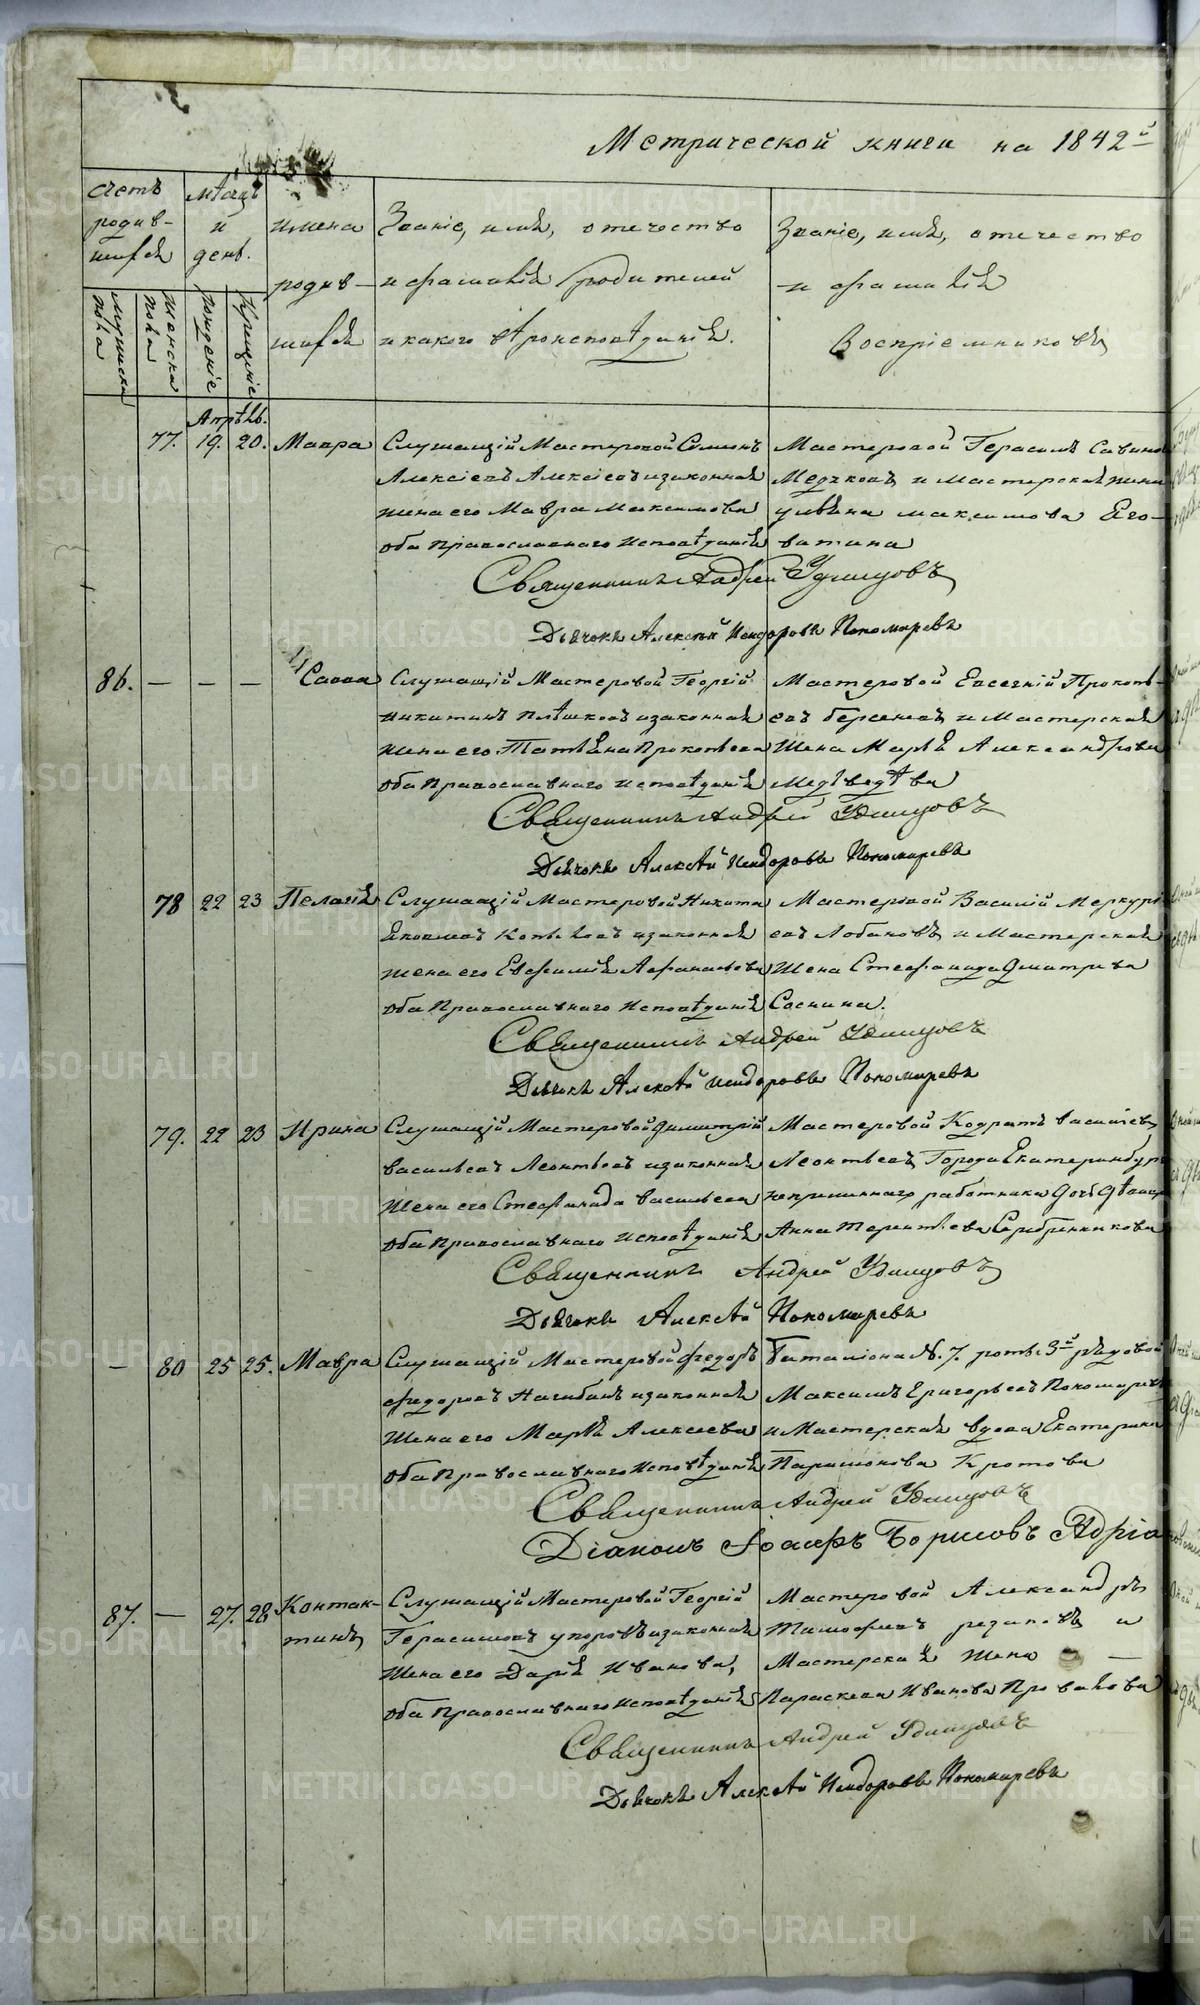 Метрической книги на 1842й
счетъ родив-шихся
мѣсяцъ и день.
имена родив-шихся
Званіе, имя, отечество и фамилія родителей и какого вѣроисповѣданія.
Званіе, имя, отечество и фамилія Воспріемниковъ
мужеска пола
женска пола
рожденіе
Крещеніе
Апрѣль.
77. 19. 20. Мавра
Служащій Мастеровой Симонъ
Алексѣевъ Алексѣевъ и законная
жена его Мавра Максимова
оба православнаго исповѣданія
Мастеровой Герасимъ Савинъ
и мастерская жена
ульяна максимова Его-
ватина
Священникъ Андрей Удинцовъ
Дьячокъ Алексѣй Исидоровъ Пономаревъ
86. — — — Савва
Служащій Мастеровой Георгій
Никитинъ Плѣшковъ и законная
жена его Татьяна Прокопьева
оба Православнаго исповѣданія
Мастеровой Евсегній Прокопь-
евъ и Мастерская
Жена Марья Александрова
Медвѣдѣва
Священникъ Андрей Удинцовъ
Дьячокъ Алексѣй Исидоровъ Пономаревъ
78 22 23 Пелагія
Служащій Мастеровой Никита
Яковлевъ и законная
жена его Евфимія Афанасьева
оба Православнаго Исповѣданія
Мастеровой Василій Меркурі-
евъ Лобановъ и Мастерская
Жена Стефанида Дмитріева
Соснина.
Священникъ Андрей Удинцовъ
Дьячокъ Алексѣй Исидоровъ Пономаревъ
79. 22 23 Ирина
Служащій Мастеровой Димитрій
васильевъ Леонтьевъ и законная
Жена его Стефанида васильева
оба Православнаго Исповѣданія
Мастеровой Кодратъ васильевъ
Леонтьевъ Города Екатеринбурга
непремѣннаго работника дочь дѣвица
Анна Терентьева Серебренникова
Священникъ Андрей Удинцовъ
Дьячокъ Алексѣй Пономаревъ
— 80 25 25. Мавра
Служащій Мастеровой Федоръ
Федоровъ Нагибинъ и законная
Жена его Марья Алексѣева
оба Православнаго Исповѣданія
Баталіона №. 7. роты 3й рядовой
Максимъ Григорьевъ Пономаревъ
и Мастерская вдова Екатерина
Парамонова Кротова
Священникъ Андрей Удинцовъ
Діаконъ Іоасафъ Борисовъ
87. — 27. 28 Контак-
тинъ
Служащій Мастеровой Георгій
Герасимовъ упоровъ и законная
Жена его Дарья Иванова,
оба Православнаго исповѣданія
Мастеровой Александръ
Тимофѣевъ и
Мастерская Жена —
Параскева Иванова
Священникъ Андрей Удинцовъ
Дьячокъ Алексѣй Исидоровъ Пономаревъ
METRIKI.GASO-URAL.RU